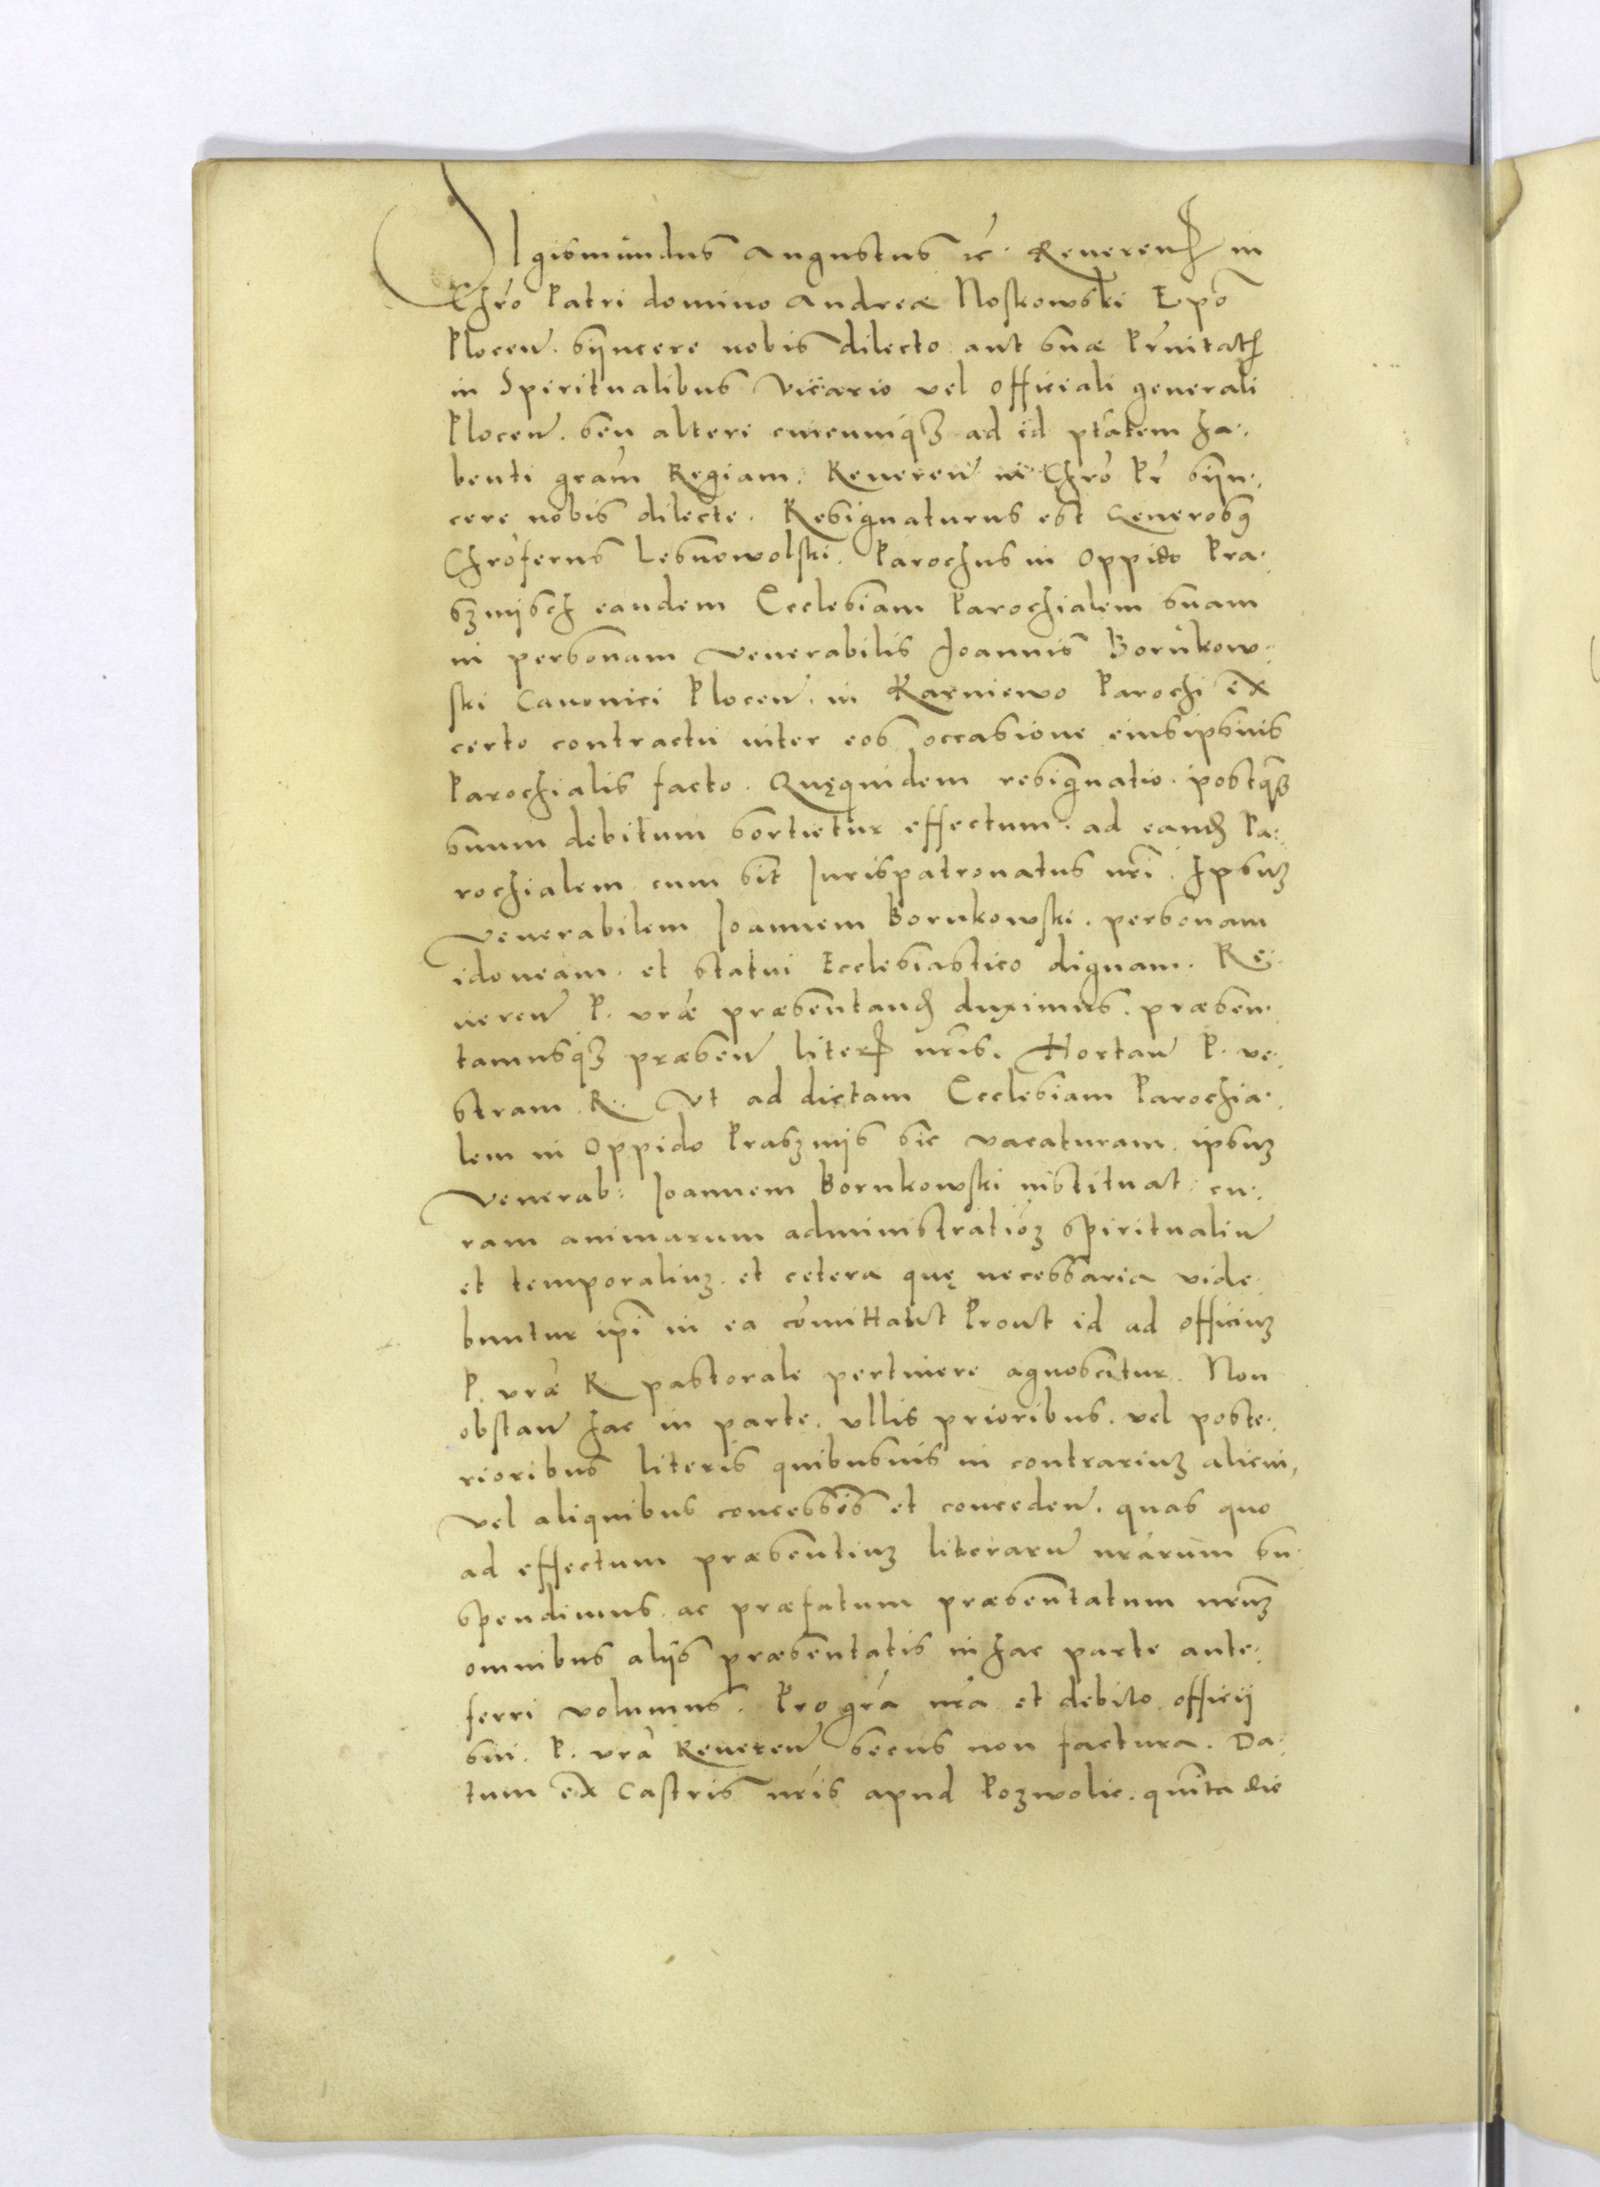 SIgismundus Augustus etc. Reveren(dis) in
Chro Patri domino Andreæ Noskowski Epo
Plocen. syncere nobis dilecto aut suæ Prnitatis
in Spiritualibus Vicario vel Officiali generali
Plocen. seu alteri cuicumq3 ad id ptatem ha-
benti gram Regiam. Reveren in Chro Pr syn-
cere nobis dilecte. Resignaturus est Generosus
Chroferus Lesnowolski. Parochus in Oppido Pra-
szmijsch eandem Ecclesiam Parochialem suam
in personam venerabilis Joannis Bornkow-
ski Canonici Plocen. in Karniewo Parochi ex
certo contractu inter eos occasione eiusipsius
Parochialis facto. Quęquidem resignatio. postq3
suum debitum sortietur effectum. ad eand Pa-
rochialem cum sit Jurispatronatus nri. Ipsum
venerabilem Joannem Bornkowski. personam
idoneam. et statui Ecclesiastico dignam. Re-
veren P. vræ præsentand duximus. præsen-
tamusq3 præsen liter nris. Hortan P. ve-
stram. R. Vt ad dictam Ecclesiam Parochia-
lem in Oppido Praszmijs sic vacaturam. ipsum
Venerab: Joannem Bornkowski instituat: cu-
ram animarum administratiom spiritualiu
et temporalium. et cetera quę necessaria vide-
buntur ipi in ea comittant Prout id ad officium
P. vræ R. pastorale pertinere agnoscitur. Non
obstan hac in parte. vllis prioribus. vel poste-
rioribus literis quibusvis in contrarium alicui,
vel aliquibus concessis et conceden. quas quo
ad effectum præsentium literaru nrarum su-
spendimus. ac præfatum præsentatum nrum
omnibus aliis præsentatis in hac parte ante-
ferri volumus. Pro gra nra et debito officii
sui. P. vra Reveren secus non factura. Da-
tum ex Castris nris apud Pozwolie. quinta die